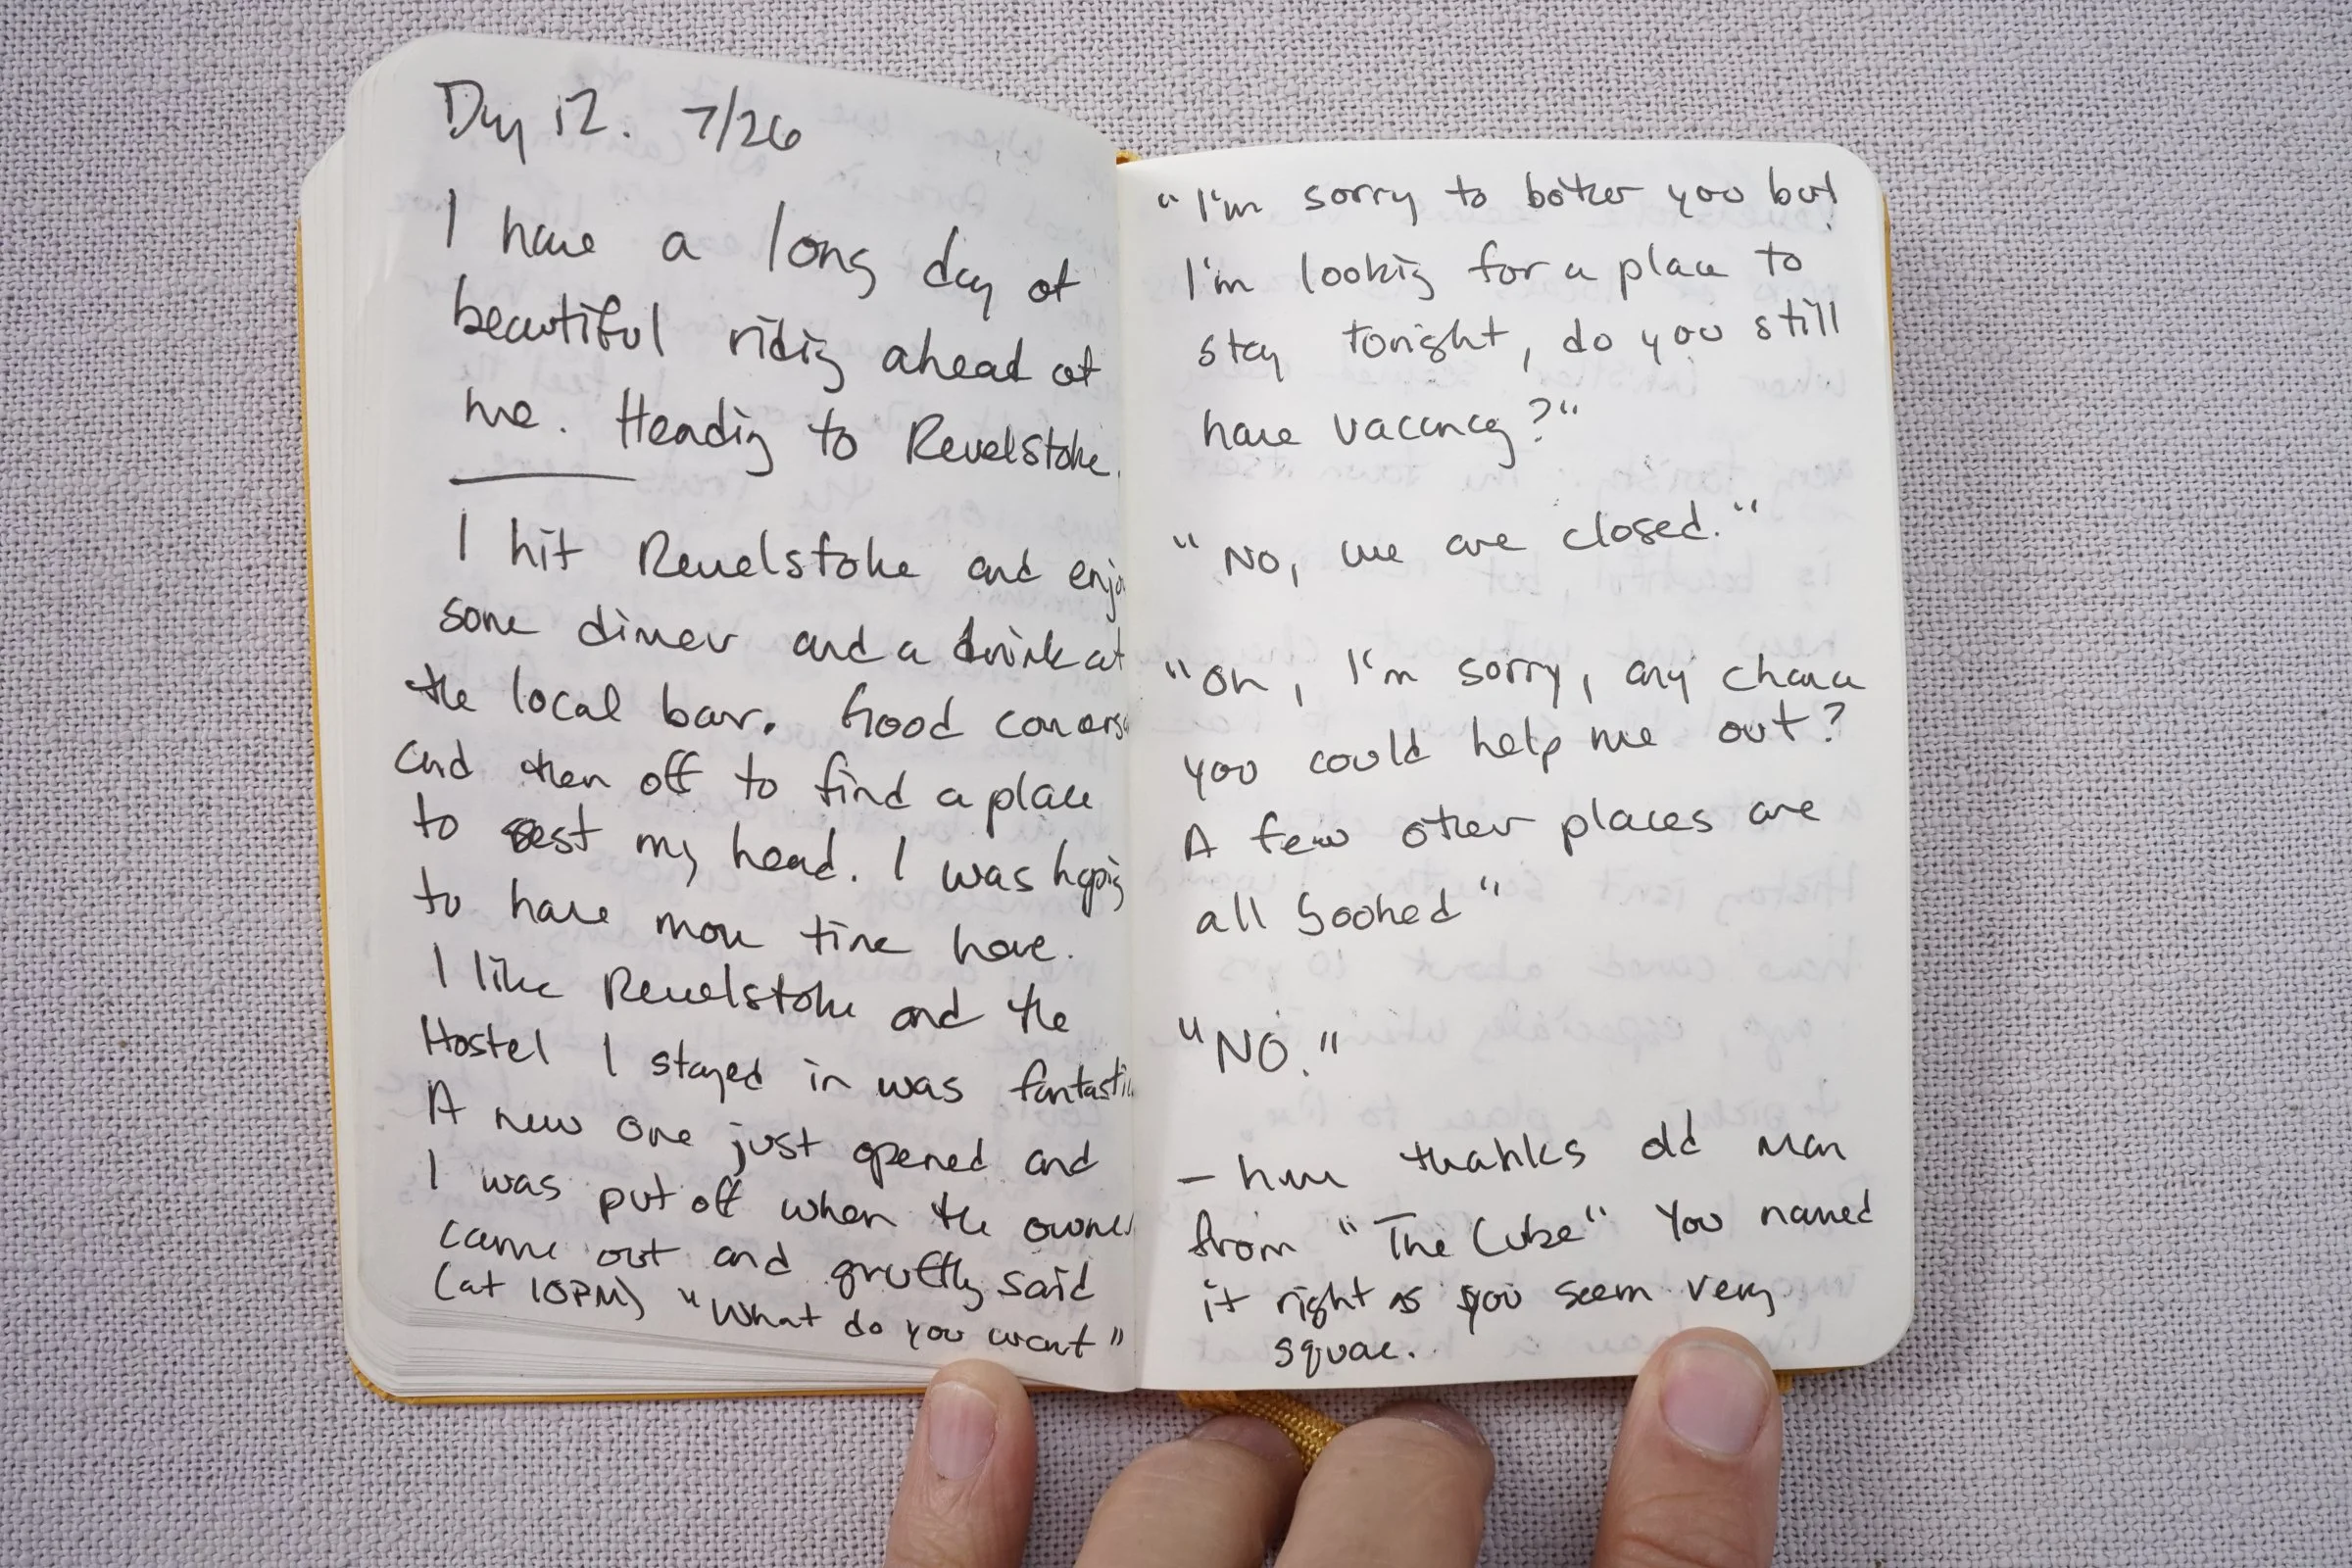 Day 12. 7/26
I have a long day of
beautiful riding ahead of
me. Heading to Revelstoke.
I hit Revelstoke and enjo
some dinner and a drink at
the local bar. Good convers
and then off to find a place
to rest my head. I was hoping
to have more time here.
I like Revelstoke and the
Hostel I stayed in was fantasti
A new one just opened and
I was put off when the owner
came out and gruffly said
(at 10PM) "What do you want"
"I'm sorry to bother you but
I'm looking for a place to
stay tonight, do you still
have vacancy?"
"No, we are closed."
"Oh, I'm sorry, any chance
you could help me out?
A few other places are
all booked"
"NO."
- hmm thanks old man
from "The Cube" You named
it right as you seem very
square.